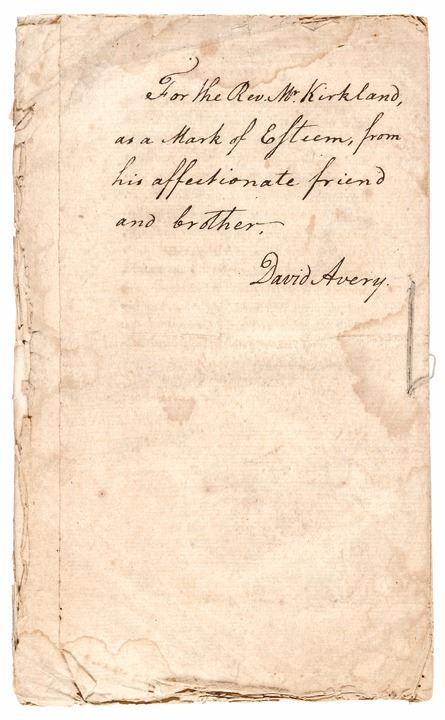 For the Rev. Mr Kirkland,
as a Mark of Esteem, from
his affectionate friend
and brother,
David Avery.